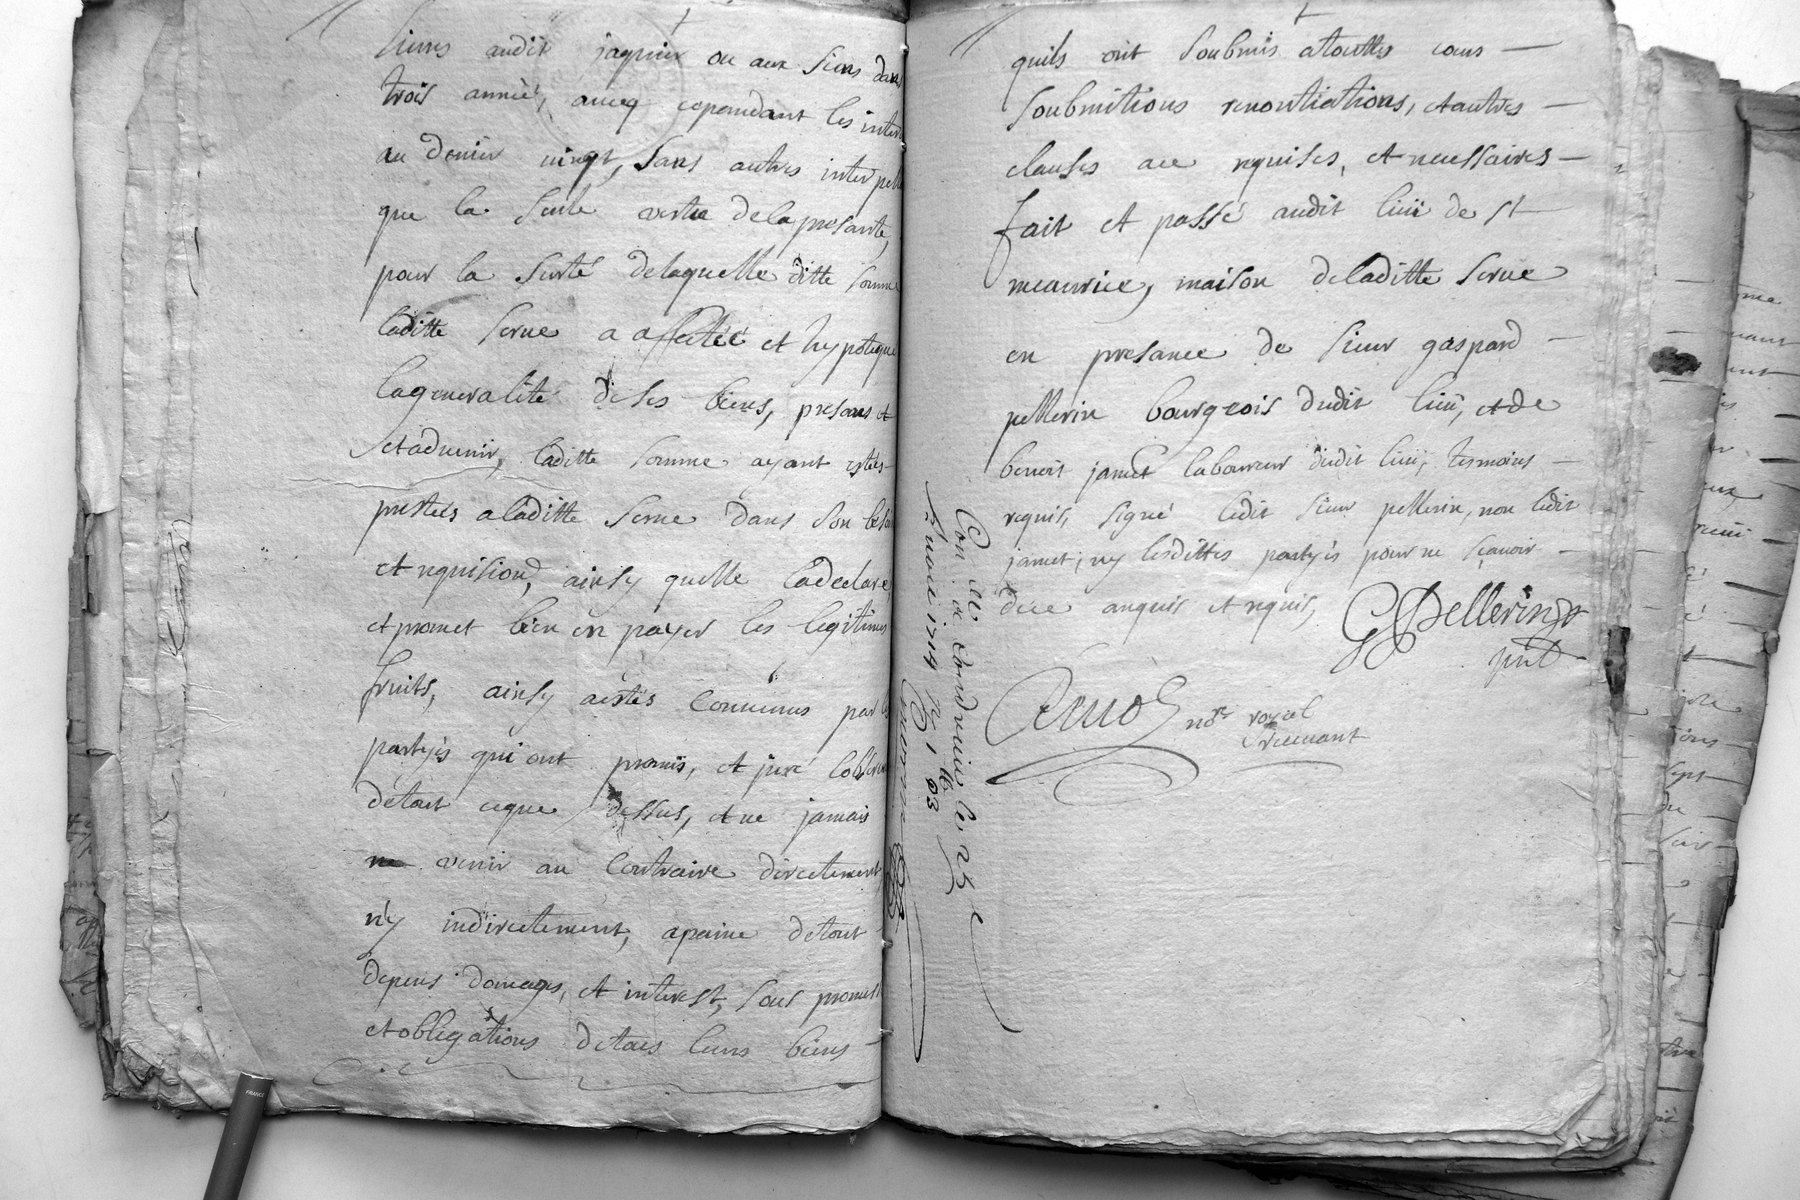 siens audit jaquier ou aux siens dans
trois année, avecq cependant les inter
au denier vingt, sans autres interpell
que la seule vertu dela presante,
pour la surté delaquelle ditte somme
laditte serve a affectéé et hypoteque
lageneralité deses biens, presans et
etadvenir, laditte somme ayant estés
prestées aladitte serve dans son besoin
et requision, ainsy quelle ladeclare
et promet bien en payer les legitimes
fruits, ainsy aestés convenus par les
partyés qui ont promis, et juré lobserver
detout ceque dessus, et ne jamais
venir au contraire directement
n'y indirectement, apaine detout
depens domages, et interest, sous promes
et obligations detous leurs biens
quils ont soubmis atouttes cours
soubmitions renontiations, et autres
clauses ace requises, et necessaires
fait et passé audit lieü de st
meaurice, maison deladitte serve
en presance de sieur gaspard
pellerin bourgeois dudit lieü, et de
benoit jamet laboureur dudit lieü, tesmoins
requis, signé ledit sieur pellerin, non ledit
jamet, ny lesdittes partyés pour ne sçavoir
de ce anquis et requis,
G Pellerin
pnt
notre royal
recevant
Con lle a Condrieu le 25e
1714 R
FRANCE